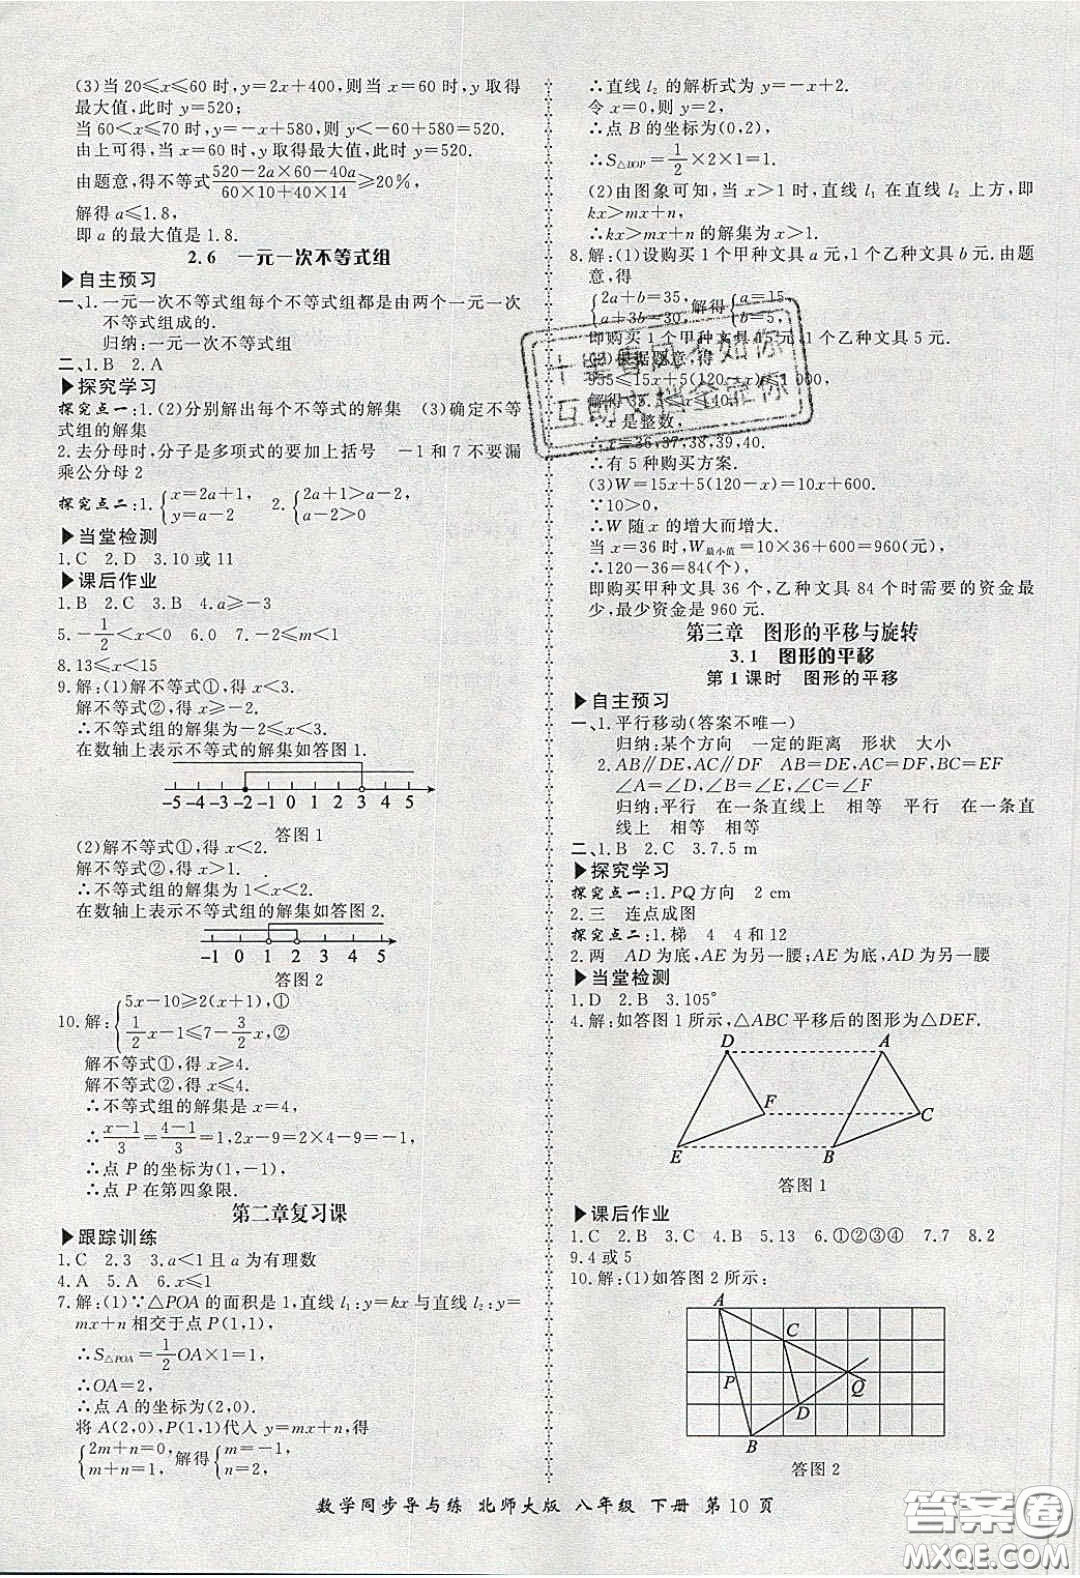 (3)当 20≤x≤60 时,y=2x+400,则当 x=60 时,y 取得
最大值,此时 y=520;
当 60<x≤70 时,y=-x+580,则 y<-60+580=520.
由上可得,当 x=60 时,y 取得最大值,此时 y=520.
由题意,得不等式(520-2a×60-40a)/(60×10+40×14)≥20%,
解得 a≤1.8,
即 a 的最大值是 1.8.
2.6 一元一次不等式组
▶自主预习
一、1.一元一次不等式组每个不等式组都是由两个一元一次
不等式组成的.
归纳:一元一次不等式组
二、1.B 2.A
▶探究学习
探究点一:1.(2)分别解出每个不等式的解集 (3)确定不等
式组的解集
2.去分母时,分子是多项式的要加上括号 -1 和 7 不要漏
乘公分母 2
探究点二:1.{x=2a+1, y=a-2 2.{2a+1>a-2, a-2>0
▶当堂检测
1.C 2.D 3.10 或 11
▶课后作业
1.B 2.C 3.B 4.a≥-3
5.-1/2<x<0 6.0 7.-2≤m<1
8.13≤x<15
9.解:(1)解不等式①,得 x<3.
解不等式②,得 x≥-2.
∴不等式组的解集为-2≤x<3.
在数轴上表示不等式的解集如答图 1.
-5 -4 -3 -2 -1 0 1 2 3 4 5
答图 1
(2)解不等式①,得 x<2.
解不等式②,得 x>1.
∴不等式组的解集为 1<x<2.
在数轴上表示不等式组的解集如答图 2.
-1 0 1 2 3 4 5
答图 2
10.解:{5x-10≥2(x+1),① 1/2x-1≤7-3/2x,②
解不等式①,得 x≥4.
解不等式②,得 x≤4.
∴不等式组的解集是 x=4,
∴(x-1)/3=(4-1)/3=1,2x-9=2×4-9=-1,
∴点 P 的坐标为(1,-1),
∴点 P 在第四象限.
第二章复习课
▶跟踪训练
1.C 2.3 3.a<1 且 a 为有理数
4.A 5.A 6.x≤1
7.解:(1)∵△POA 的面积是 1,直线 l₁:y=kx 与直线 l₂:y=
mx+n 相交于点 P(1,1),
∴S△POA=1/2OA×1=1,
∴OA=2,
∴点 A 的坐标为(2,0).
将 A(2,0),P(1,1)代入 y=mx+n,得
{2m+n=0, m+n=1, 解得{m=-1, n=2,
∴直线 l₂ 的解析式为 y=-x+2.
令 x=0,则 y=2,
∴点 B 的坐标为(0,2),
∴S△BOP=1/2×2×1=1.
(2)由图象可知,当 x>1 时,直线 l₁ 在直线 l₂ 上方,即
kx>mx+n,
∴kx>mx+n 的解集为 x>1.
8.解:(1)设购买 1 个甲种文具 a 元,1 个乙种文具 b 元.由题
意,得
{2a+b=35, a+3b=30, 解得{a=15, b=5,
即购买 1 个甲种文具 15 元,1 个乙种文具 5 元.
(2)根据题意,得
955≤15x+5(120-x)≤1 000,
解得 35.5≤x≤40.
∵x 是整数,
∴x=36,37,38,39,40.
∴有 5 种购买方案.
(3)W=15x+5(120-x)=10x+600.
∵10>0,
∴W 随 x 的增大而增大.
当 x=36 时,W最小值=10×36+600=960(元),
∴120-36=84(个),
即购买甲种文具 36 个,乙种文具 84 个时需要的资金最
少,最少资金是 960 元.
第三章 图形的平移与旋转
3.1 图形的平移
第 1 课时 图形的平移
▶自主预习
一、1.平行移动(答案不唯一)
归纳:某个方向 一定的距离 形状 大小
2.AB∥DE,AC∥DF AB=DE,AC=DF,BC=EF
∠A=∠D,∠B=∠DEF,∠ACB=∠F
归纳:平行 在一条直线上 相等 平行 在一条直
线上 相等 相等
二、1.B 2.C 3.7.5 m
▶探究学习
探究点一:1.PQ 方向 2 cm
2.三 连点成图
探究点二:1.梯 4 4 和 12
2.两 AD 为底,AE 为另一腰;AE 为底,AD 为另一腰
▶当堂检测
1.D 2.B 3.105°
4.解:如答图 1 所示,△ABC 平移后的图形为△DEF.
D A
F C
E B
答图 1
▶课后作业
1.C 2.B 3.C 4.B 5.13 6.①②③④ 7.8 8.2
9.4 或 5
10.解:(1)如答图 2 所示:
A
C
P Q
D
B
答图 2
十里春风不如你
互助文档全靠你
数学同步导与练 北师大版 八年级 下册 第 10 页
答案圈
MXQE.COM